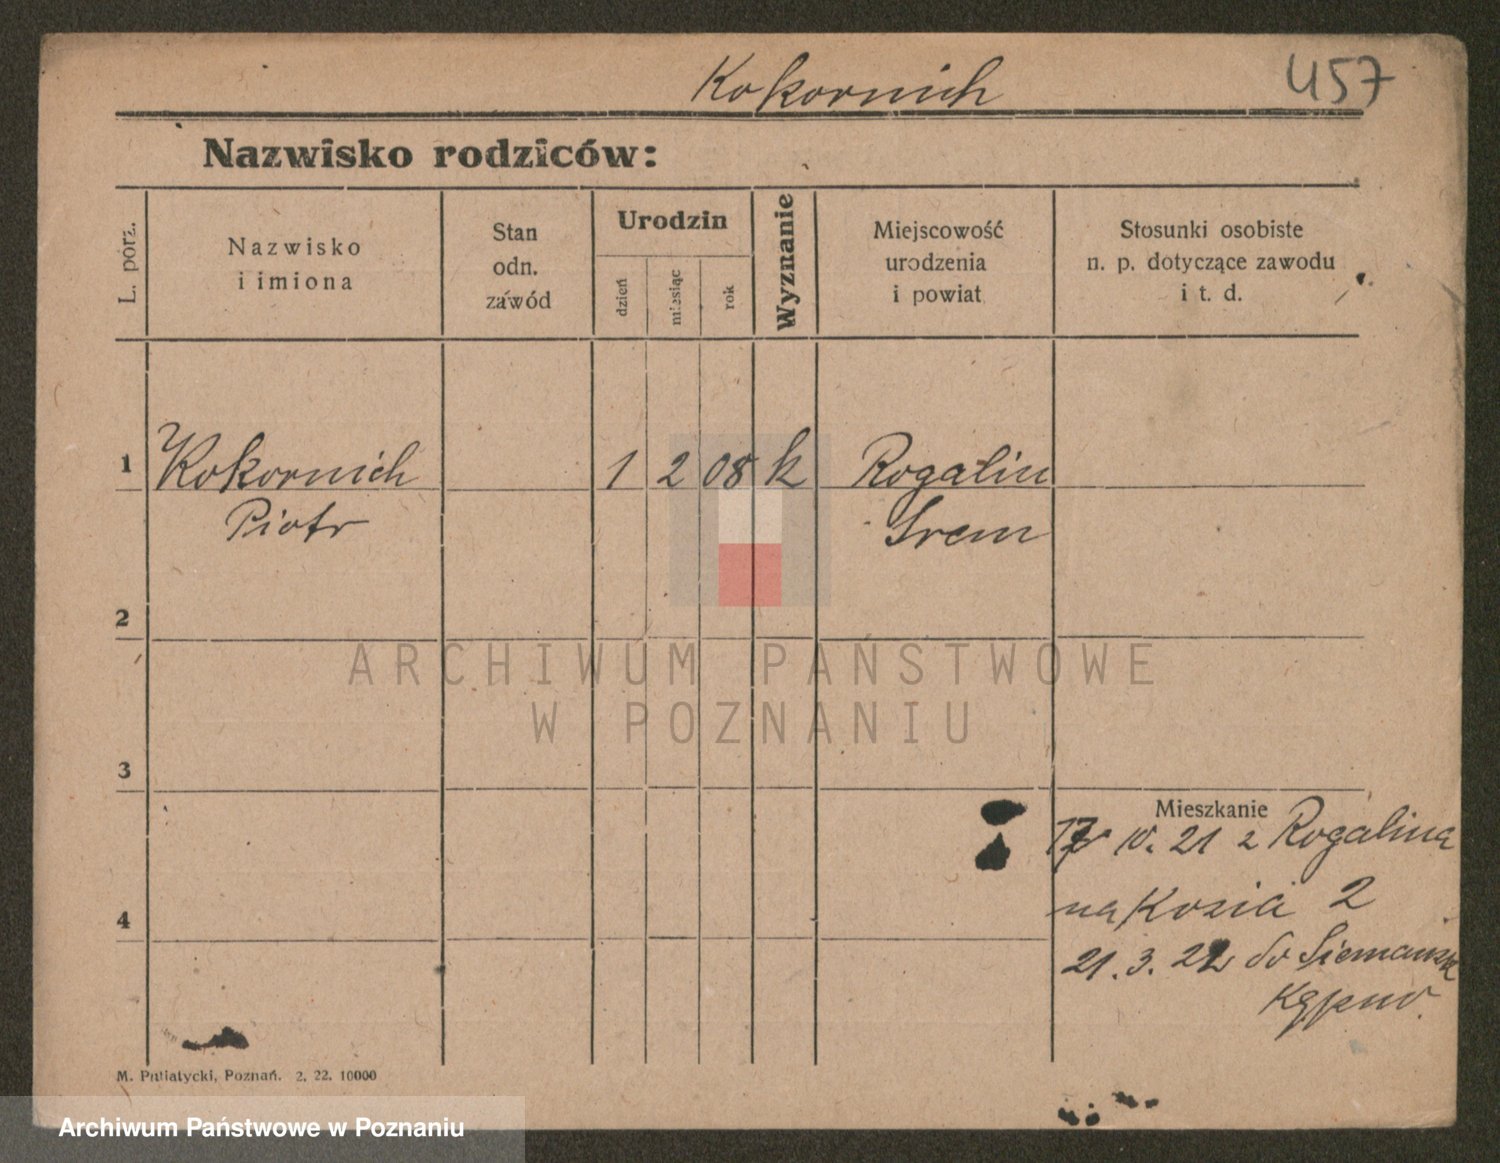 Kokornich
457
Nazwisko rodziców:
L. porz.
Nazwisko
i imiona
Stan
odn.
zawód
Urodzin
dzień
miesiąc
rok
Wyznanie
Miejscowość
urodzenia
i powiat
Stosunki osobiste
n. p. dotyczące zawodu
i t. d.
1 Kokornich 1 2 08 k Rogalin
Piotr Srem
2
ARCHIWUM PAŃSTWOWE
W POZNANIU
3
Mieszkanie
10. 21 z Rogalina
na Kozia 2
4
21. 3. 22 do
M. Putiatycki, Poznań. 2. 22. 10000
Archiwum Państwowe w Poznaniu